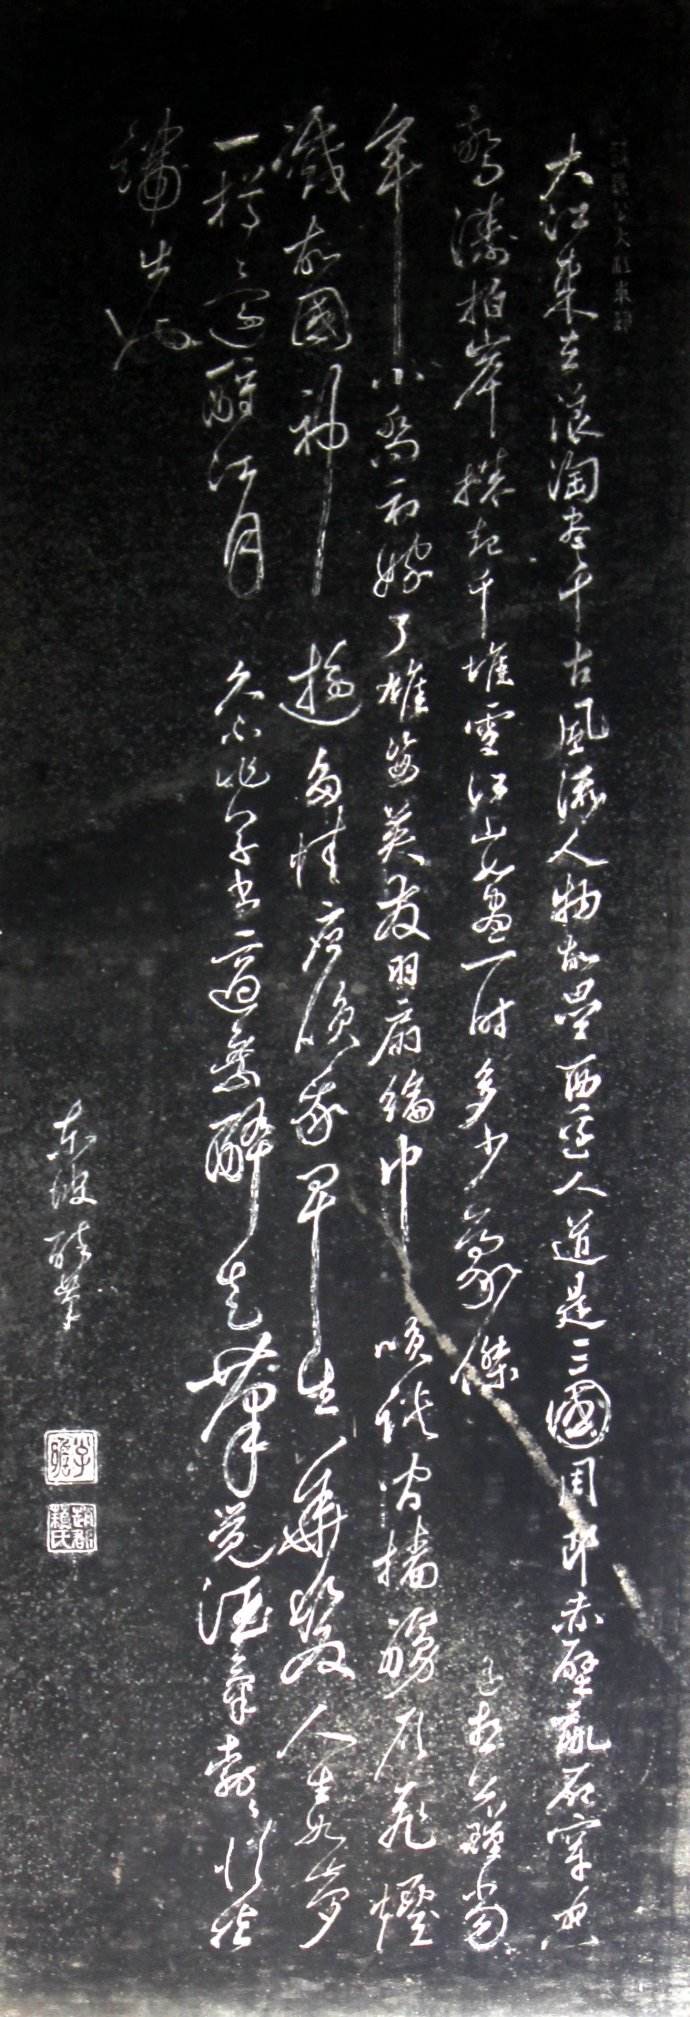 大江東去浪淘盡千古風流人物故壘西邊人道是三國周郎赤壁亂石穿空
驚濤拍岸捲起千堆雪江山如畫一時多少豪傑 遙想公瑾當
年小喬初嫁了雄姿英發羽扇綸巾 談笑間檣艣灰飛煙
滅故國神遊多情應笑我早生華髮人生如夢
一樽還酹江月 久不作草書適乘醉走筆覺酒氣勃勃從指
端出也
東坡醉筆
子瞻
趙郡蘇氏